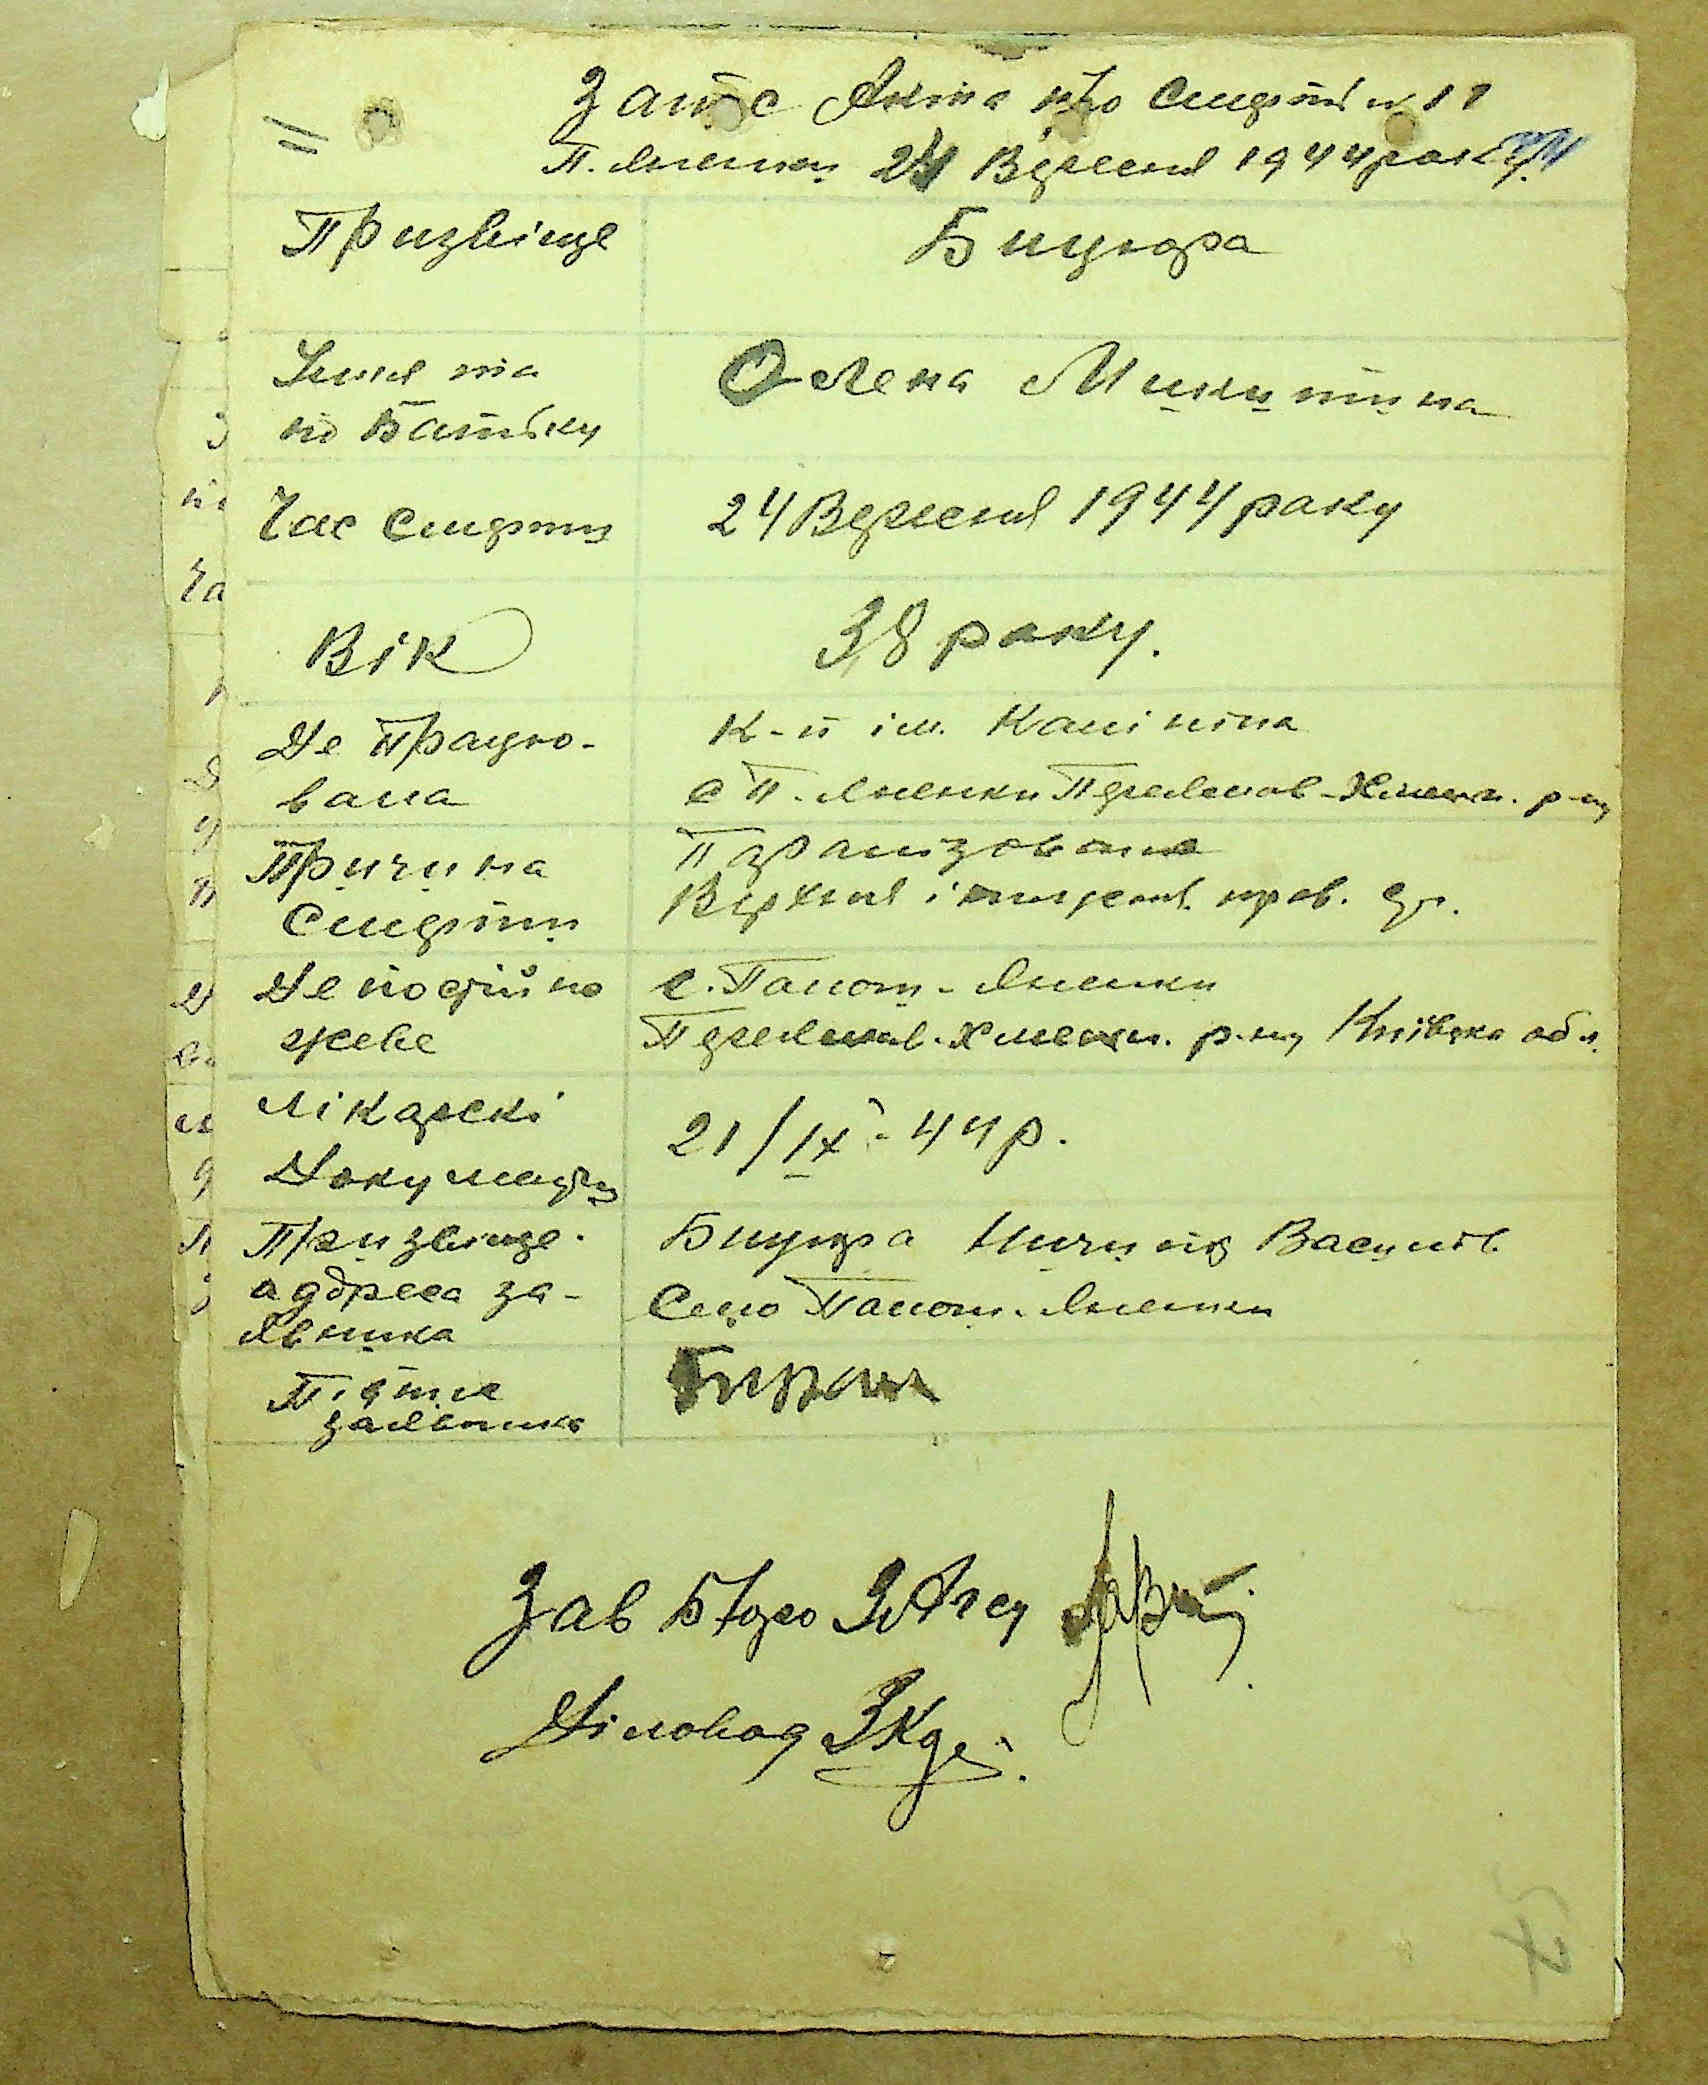 Запис Акта про Смерть № 11
24 Вересня 1944 року
Призвіще
Бицюра
Імня та
по Батьку
Олена Микитина
Час Смерти
24 Вересня 1944 року
Вік
38 року.
Де Працю-
вала
К-п ім. Калініна
с П. Яненки Переяслав-Хмельн. р-ну
Причина
Смерти
Паралізована
Верхня і
Де постійно
жеве
с. Папом-Яненки
Переяслав-Хмельн. р-ну Київска обл.
Лікарскі
Документи
21/IX-44 р.
Призвіще
адреса за-
явника
Бицюра Василів.
Село Папом-Яненки
Підпис
заявника
Зав Бюро ЗАГСУ
Діловод